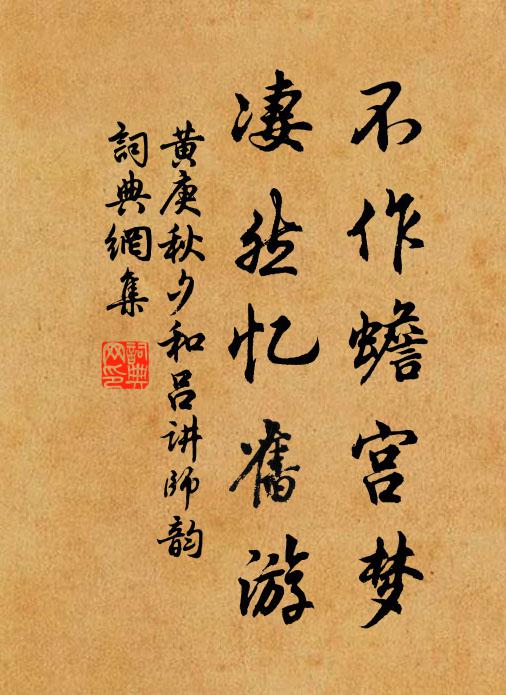 不作蟾宫梦
凄然忆舊游
黄庚秋夕和吕讲師韵
詞典網集
詞典网印